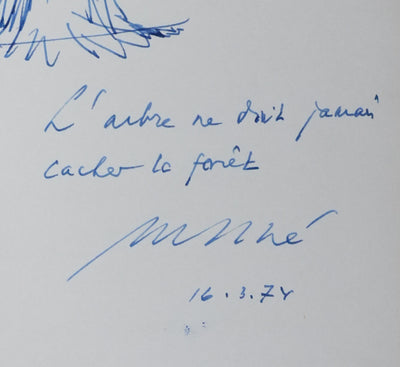 L'arbre ne doit jamais
cacher la forêt
16.3.74